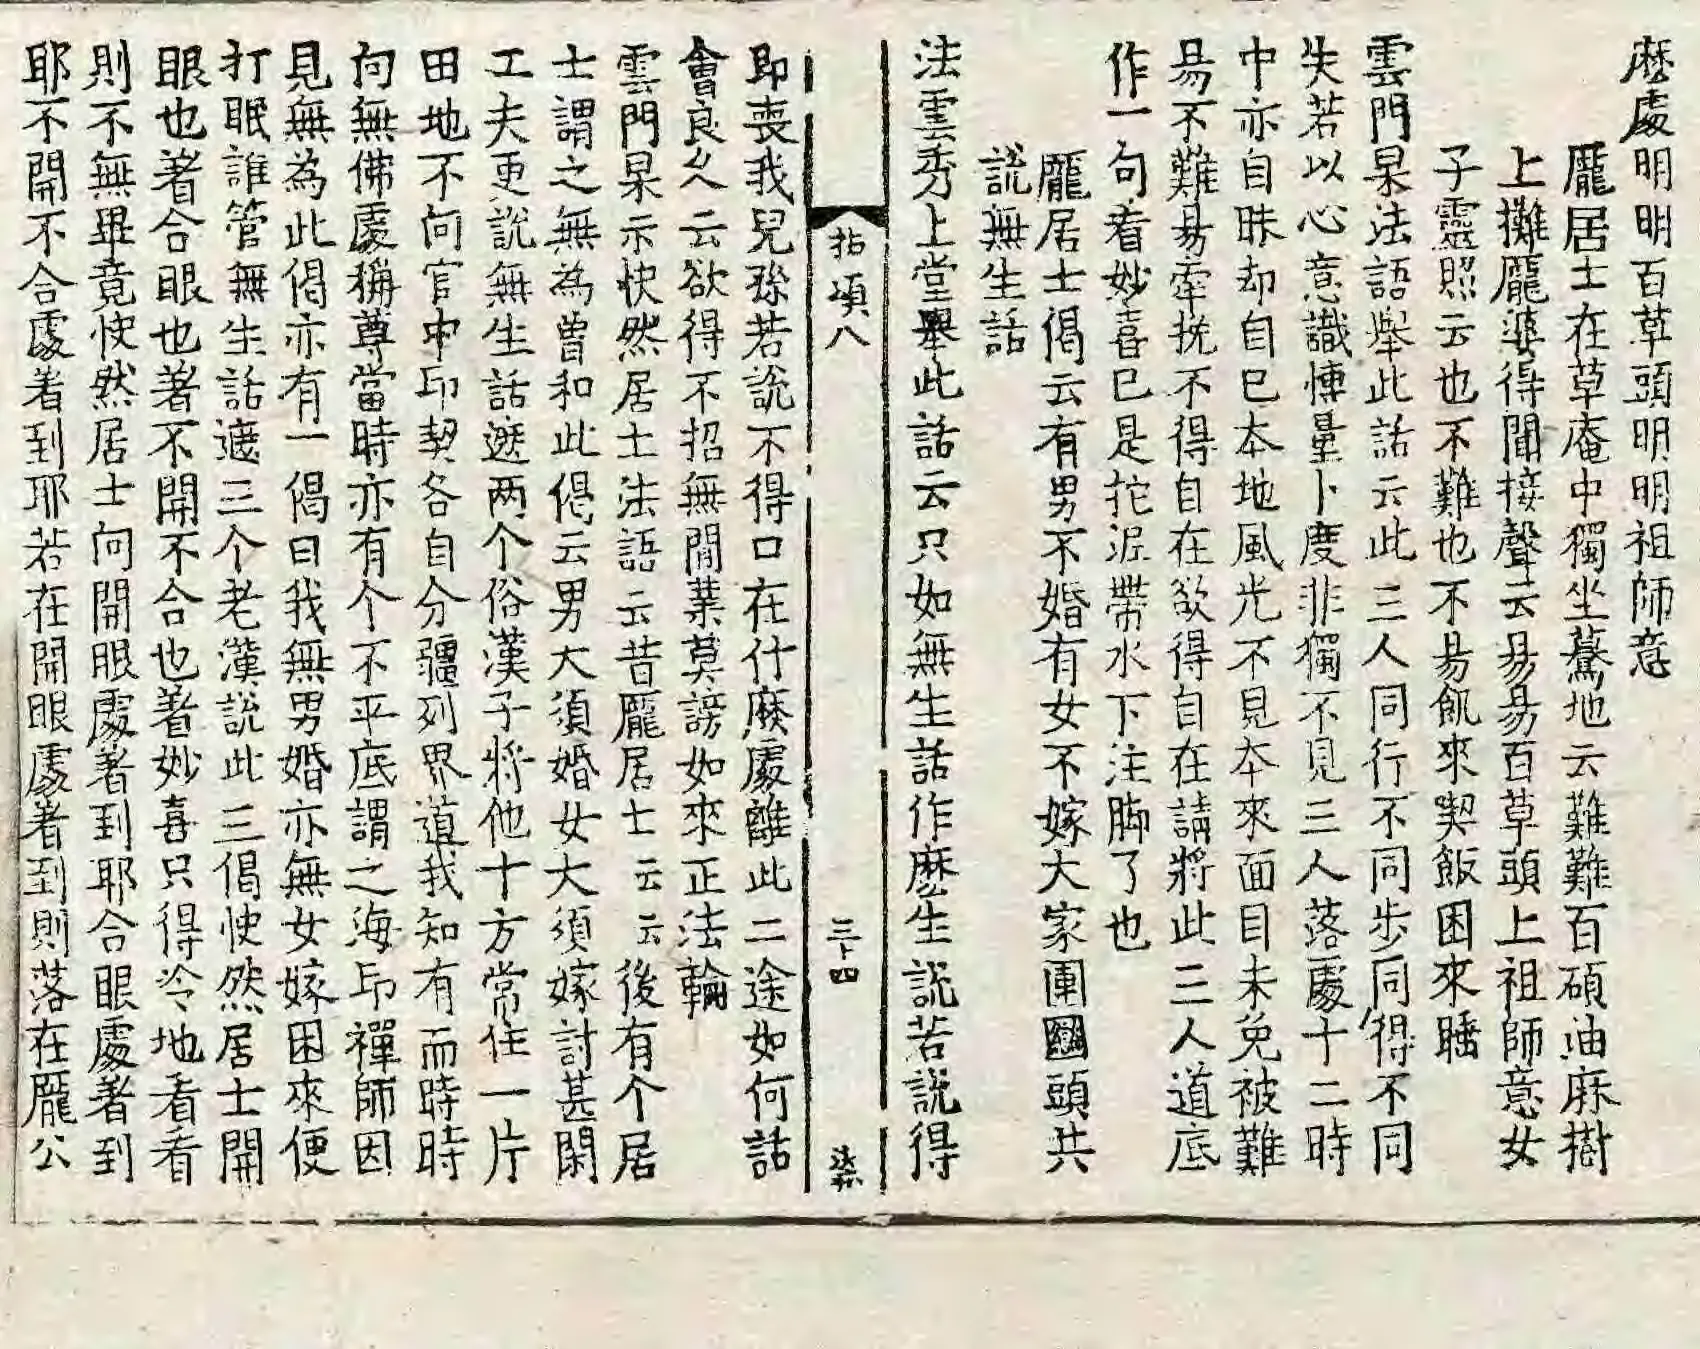 麽處明明百草頭明明祖師意
龐居士在草庵中獨坐驀地云難難百碩油麻樹
上攤龐婆得聞接聲云易易百草頭上祖師意女
子靈照云也不難也不易飢來喫飯困來睡
雲門杲法語舉此話云此三人同行不同步同得不同
失若以心意識慱量卜度非獨不見三人落處十二時
中亦自昧却自巳本地風光不見本來面目未免被難
易不難易牽挽不得自在欲得自在請將此三人道底
作一句看妙喜巳是拕泥帶水下注脚了也
龐居士偈云有男不婚有女不嫁大家團圞頭共
說無生話
法雲秀上堂舉此話云只如無生話作麽生說若說得
拈頌八
三十四
即喪我兒孫若說不得口在什麽處離此二途如何話
會良久云欲得不招無間業莫謗如來正法輪
雲門杲示快然居士法語云昔龐居士云云後有个居
士謂之無為曾和此偈云男大須婚女大須嫁討甚閑
工夫更說無生話遮两个俗漢子將他十方常住一片
田地不向官中印契各自分疆列界道我知有而時時
向無佛處稱尊當時亦有个不平底謂之海印禪師因
見無為此偈亦有一偈曰我無男婚亦無女嫁困來便
打眠誰管無生話遮三个老漢說此三偈快然居士開
眼也著合眼也著不開不合也著妙喜只得冷地看看
則不無畢竟快然居士向開眼處著到耶合眼處著到
耶不開不合處著到耶若在開眼處著到則落在龐公